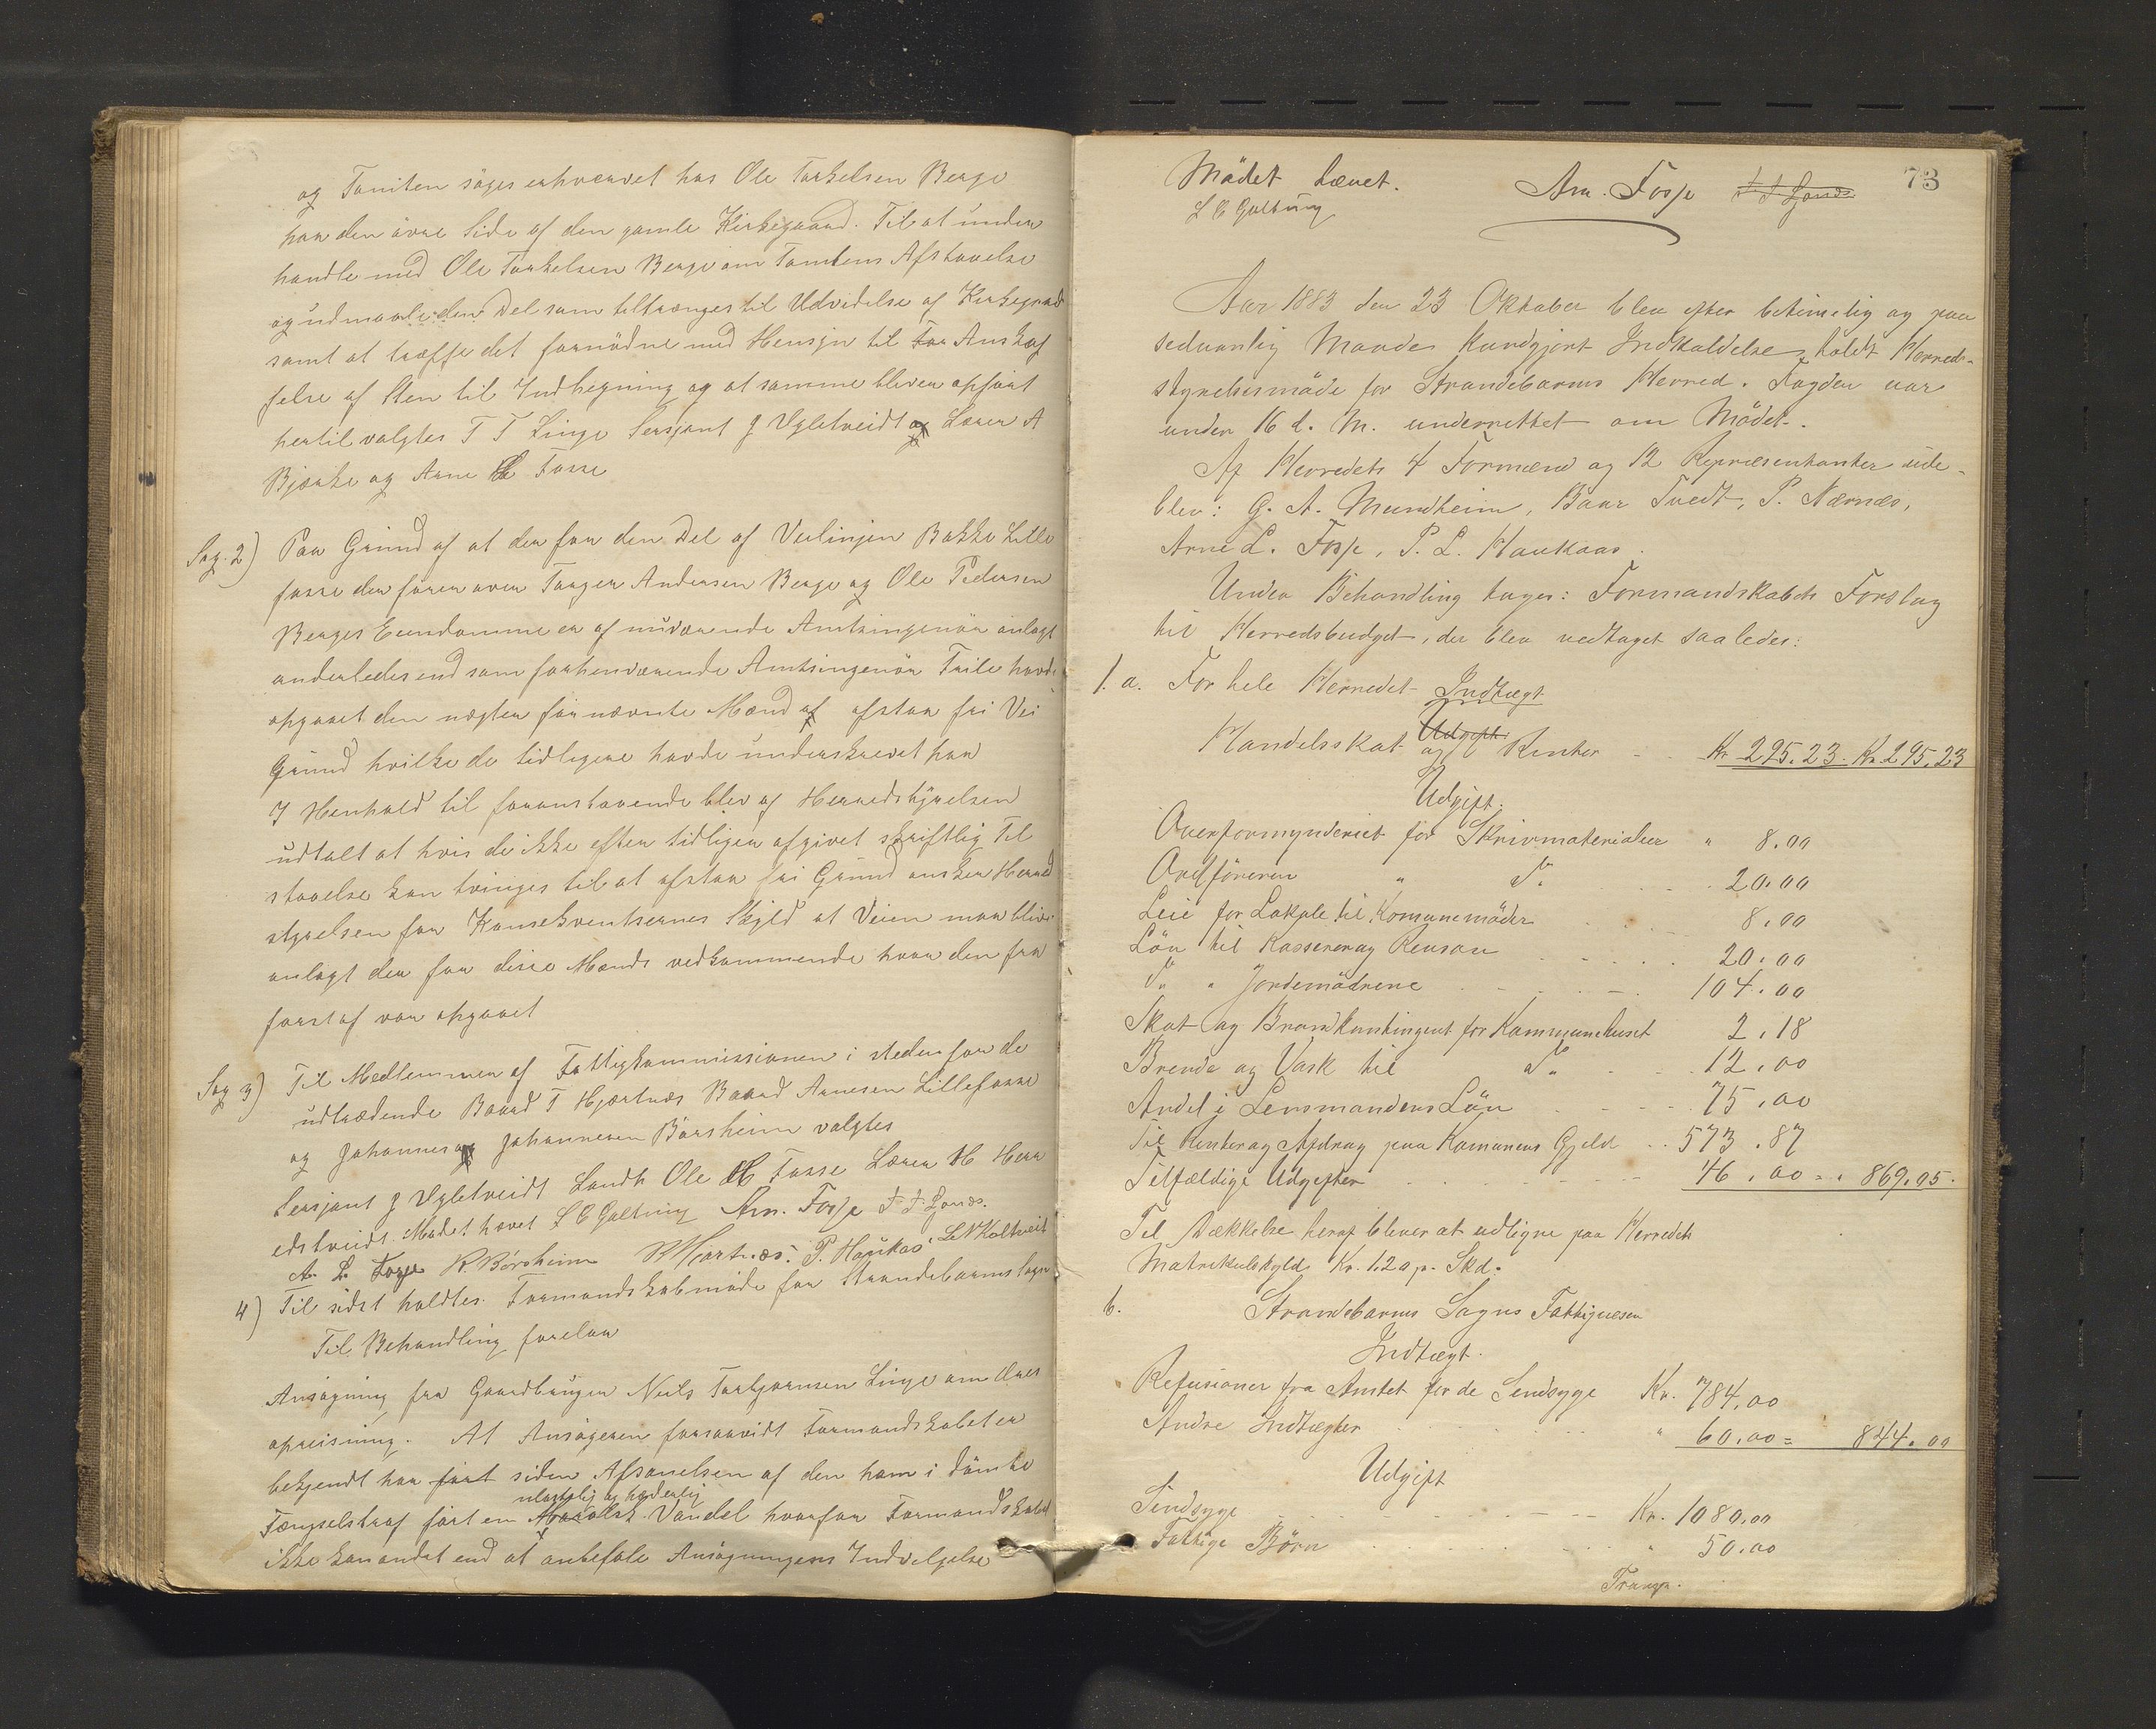 og Tomten söges erhvervet hos Ole Torkelsen Berge
paa den övre Side af den gamle Kirkegaard. Til at under
handle med Ole Torkelsen Berge om Tomtens Afstaaelse
og udmaale den Del som tiltrænges til Udvidelse af Kirkegaard
samt at træffe det fornödne med Hensyn til For Anskaf
felse af Sten til Indhegning og at samme bliver opfört
hertil valgtes T T Linge Sersjant J Ygletveidt og Lærer A
Bjærke og Arne L Fosse
Sag. 2) Paa Grund af at der for den Del af Veilinjen Bakke Lille
fosse der förer over Torger Andersen Berge og Ole Pedersen
Berges Eiendomme er af nuværende Amtsingeniör anlagt
anderledes end som forhenværende Amtsingeniör Friile havde
opgaaet den nægter fornævnte Mænd at afstaa fri Vei
Grund hvilke de tidligere havde underskrevet paa
I Henhold til foranstaaende blev af Herredstyrelsen
udtalt at hvis de ikke efter tidligere afgivet skriftlig Til
staaelse kan tvinges til at afstaa fri Grund ansker Herred
styrelsen for Konsekventsernes Skyld at Veien maa blive
anlagt der for disse Mænds vedkommende hvor den fra
först af var opgaaet
Sag 3) Til Medlemmer af Fattigkommissionen i steden for de
udtrædende Baard T Hjartnæs Baard Arnesen Lillefosse
og Johannes Johannesen Börsheim valgtes
Sersjant J Ygletveidt Landh Ole H Fosse Lærer H Herr
edstveidt. Mödet hævet L E Galtung Arn. Fosse T. T. Ljones.
A. L. Fosse K Börsheim B Hjartnæs. P. Haukas L N Koltveit
4) Til sidst holdtes Formandskabmöde for Strandebarms Sogn
Til Behandling forelaa
Ansögning fra Gaardbruger Neils Torbjørnsen Linge om Æres
opreisning. At Ansögeren forsaavidt Formandskabet er
bekjendt har fört siden Afsonelsen af den ham i dömte
ulastelig og hæderlig
Fængselstraf fört en Moralsk Vandel hvorfor Formandskabet
ikke kan andet end at anbefale Ansögningens Indvilgelse
73
Mödet hævet. Arn. Fosse T T Ljones
L E Galtung
Aar 1883 den 23 Oktober blev efter betimelig og paa
sedvanlig Maade kundgjort Indkaldelse holdt Herreds-
styrelsesmöde for Strandebarms Herred. Fogden var
under 16 d. M. underrettet om Mödet.
Af Herredets 4 Formænd og 12 Repræsentanter ude-
blev: G. A. Mundheim, Baar Tvedt, P. Nærnæs,
Arne L. Fosse, P. L. Haukaas.
Under Behandling toges: Formandskabets Forslag
til Herredsbudget, der blev vedtaget saaledes:
1. a. For hele Herredet Indtægt
Udgift
Handelsskat og Renter Kr 295.23. Kr 295.23
Udgift.
Overformynderiet for Skrivmaterialier " 8.00
Ordföreren " do 20.00
Leie for Lokale til Komunemöder 8.00
Lön til Kasserer og Revisor 20.00
do " Jordemödrene 104.00
Skat og Brandkontingent for Kommunehuset 2.18
Brende og Vask til do 12.00
Andel i Lensmandens Lön 75.00
Til Renter og Afdrag paa Komunens Gjeld 573.87
Tilfældige Udgifter 46.00 = 869.05.
Til Dækkelse heraf bliver at udligne paa Herredets
Matrikulskyld Kr. 1.20 p. Skd.
b. Strandebarms Sogns Fattigvæsen
Indtægt.
Refusioner fra Amtet for de Sindsyge Kr. 784.00
Andre Indtægter " 60.00 = 844.00
Udgift
Sindsyge Kr. 1080.00
Fattige Börn " 50.00
Transp.